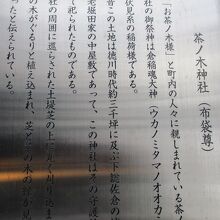 茶ノ木神社（布袋尊）
「お茶ノ木様」と町内の人々に親しまれている茶ノ
社の御祭神は倉稲魂大神（ウカノミタマノオオカミ
伏見系の稲荷様である。
昔この土地は徳川時代約三千坪に及ぶ下総佐倉の
老堀田家の中屋敷であって、この神社はその守護
て祀られたものである。
社の周囲に巡らされた土堤芝の上に丸く刈り込ま
の木がぐるりと植え込まれ、芝と茶の木の
ったと伝えられている。